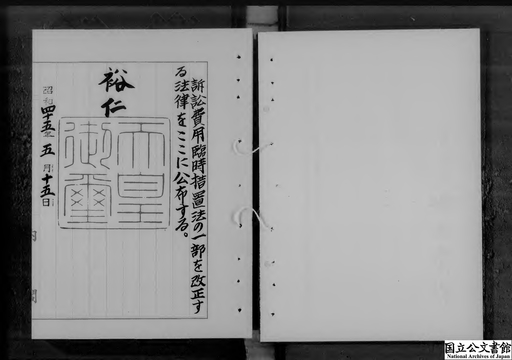 訴訟費用臨時措置法の一部を改正す
る法律をここに公布する。
裕仁
天皇
御璽
昭和四十五年五月十五日
内閣
国立公文書館
National Archives of Japan